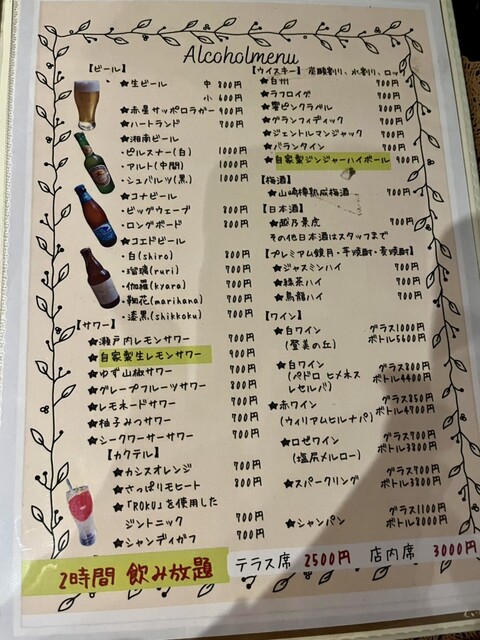 Alcoholmenu
【ビール】
★生ビール 中 800円
小 600円
★赤星サッポロラガー 900円
★ハートランド 700円
★湘南ビール
・ピルスナー(白) 1000円
・アルト(中間) 1000円
・シュバルツ(黒) 1000円
★コナビール
・ビッグウェーブ 800円
・ロングボード 800円
★コエドビール
・白(shiro) 800円
・瑠璃(ruri) 700円
・伽羅(kyara) 700円
・鞠花(marihana) 700円
・漆黒(shikkoku) 700円
【サワー】
★瀬戸内レモンサワー 700円
★自家製生レモンサワー 900円
★ゆず山椒サワー 700円
★グレープフルーツサワー 800円
★レモネードサワー 700円
★柚子みつサワー 700円
★シークワーサーサワー 700円
【カクテル】
★カシスオレンジ 700円
★さっぱりモヒート 800円
★「ROKU」を使用した
ジントニック 700円
★シャンディガフ 700円
【ウイスキー】炭酸割り、水割り、ロック
★白州 900円
★ラフロイグ 700円
★響ピンクラベル 800円
★グランフィディック 700円
★ジェントルマンジャック 700円
★バランタイン 700円
★自家製ジンジャーハイボール 900円
【梅酒】
★山崎樽熟成梅酒 700円
【日本酒】
★越乃景虎 700円
その他日本酒はスタッフまで
【プレミアム鏡月・芋焼酎・麦焼酎】
★ジャスミンハイ 700円
★緑茶ハイ 700円
★烏龍ハイ 700円
【ワイン】
★白ワイン グラス1000円
(登美の丘) ボトル5600円
★白ワイン グラス800円
(パドロ ヒメネス ボトル4400円
レセルバ)
★赤ワイン グラス850円
(ウィリアムヒルナパ) ボトル4700円
★ロゼワイン グラス700円
(塩尻メルロー) ボトル3800円
★スパークリング グラス700円
ボトル3800円
★シャンパン グラス1100円
ボトル8000円
2時間 飲み放題 テラス席 2500円 店内席 3000円